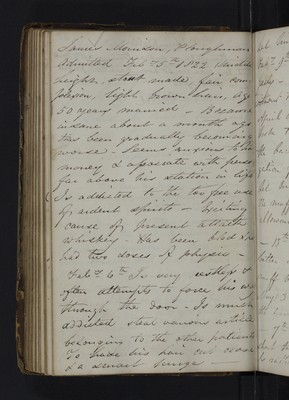 James Morrison, Ploughman
Admitted Feby 5th 1822 middle
height, stout made, fair com
plexion, light brown hair, age
50 years married - Became
insane about a month ago
Has been gradually becoming
worse - Seems anxious to
money & associate with persons
far above his station in life
Is addicted to the too free use
of ardent spirits - Exciting
cause of present attack
whiskey - Has been bled &
had two doses of physic -
Feby 6th Is very restless &
often attempts to force his way
through the door - Is much
addicted steal various articles
belonging to the other patients
To have his hair cut close
& a smart purge